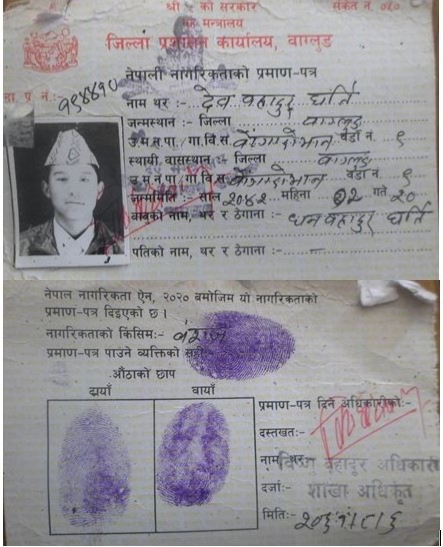 श्री ५ को सरकार
संकेत नं. ०८०
गृह मन्त्रालय
जिल्ला प्रशासन कार्यालय, वाग्लुङ
नेपाली नागरिकताको प्रमाण-पत्र
ना. प्र. नं.:-
नाम थर :- देव बहादुर घर्ति
जन्मस्थान :- जिल्ला वाग्लुङ
उ.म.न.पा./गा.वि.स. वोंगादोभान वडा नं. ९
स्थायी वासस्थान :- जिल्ला वाग्लुङ
उ.म.न.पा./गा.वि.स. वोंगादोभान वडा नं. ९
जन्ममिति :- साल २०४२ महिना १२ गते २०
बाबुको नाम, थर र ठेगाना :- धन बहादुर घर्ति
पतिको नाम, थर र ठेगाना :-
नेपाल नागरिकता ऐन, २०२० बमोजिम यो नागरिकताको
प्रमाण-पत्र दिइएको छ ।
नागरिकताको किसिम:- वंशज
प्रमाण-पत्र पाउने व्यक्तिको सही
औंठाको छाप
दायाँ बायाँ
प्रमाण-पत्र दिने अधिकारीको:-
दस्तखत:-
नाम, थर:- विष्णु बहादुर अधिकारी
दर्जा:- शाखा अधिकृत
मिति:-